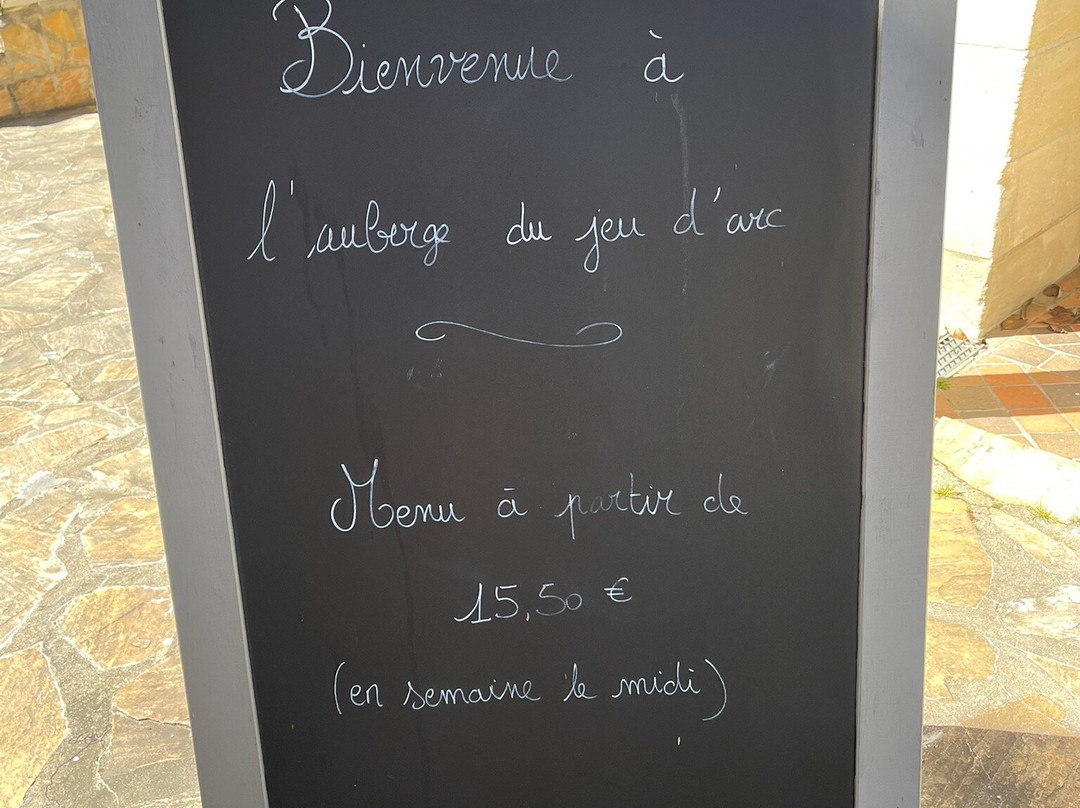 Bienvenue à
l'auberge du jeu d'arc
Menu à partir de
15,50 €
(en semaine le midi)